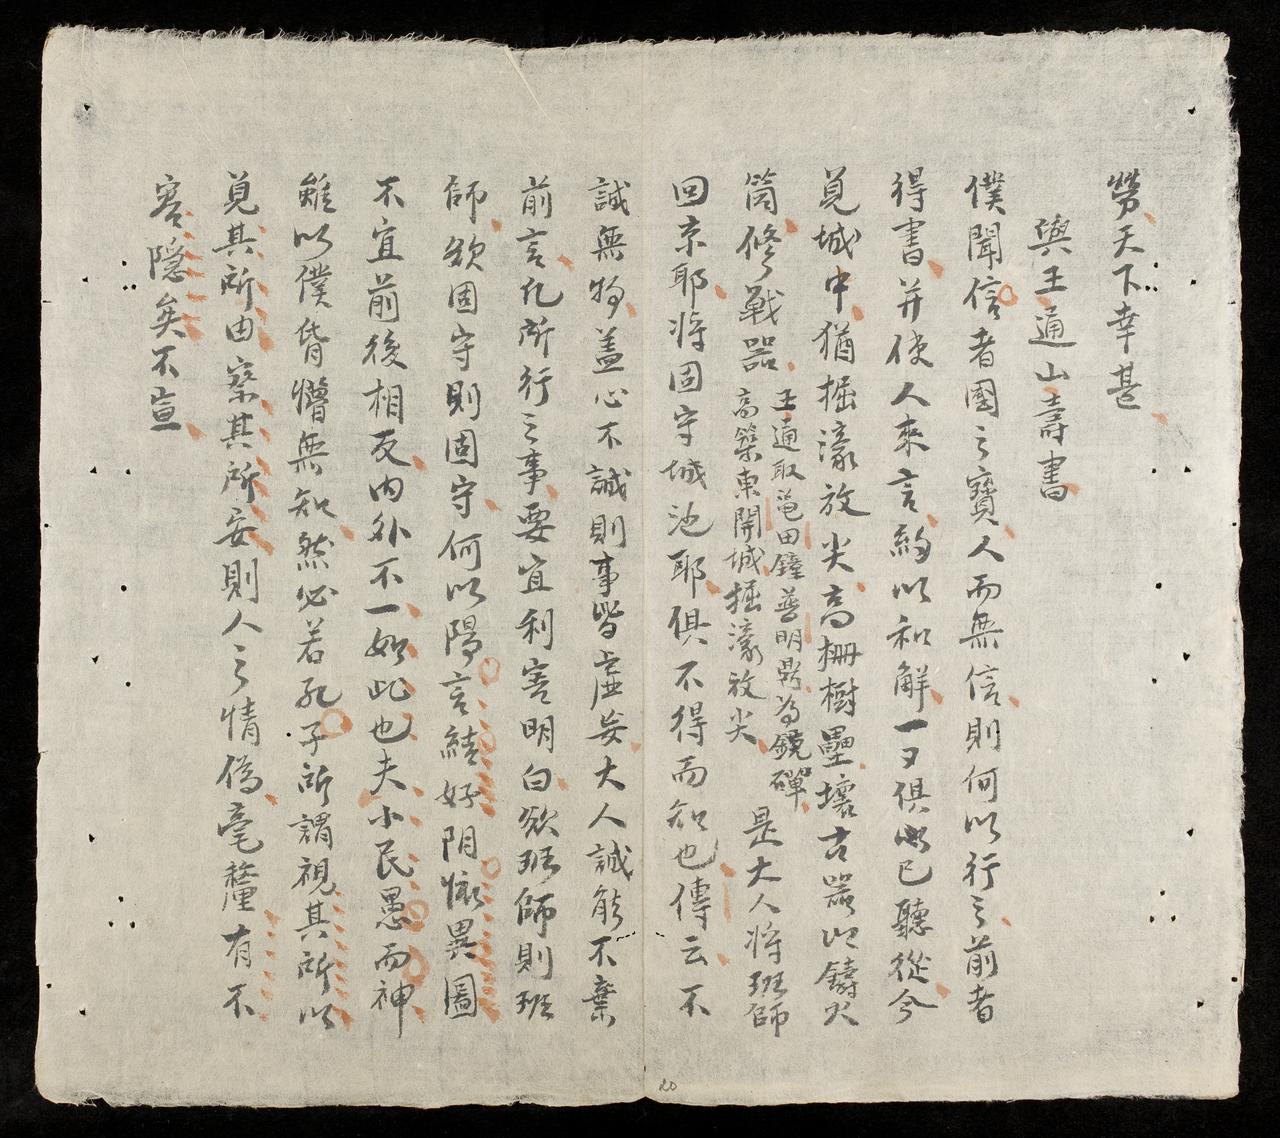 勞天下幸甚
與王通山壽書
僕聞信者國之寶人而無信則何以行之前者
得書并使人來言約以和解一一俱已聽從今
覓城中猶掘濠放尖高柵樹壘壞古器以鑄火
筒修戰器
王通取龟田鐘普明鼎為鏡磾
高築東開城掘濠放尖
是大人将班師
回京耶将固守城池耶俱不得而知也傳云不
誠無物盖心不誠則事皆虛妄大人誠能不棄
前言凢所行之事要宜利害明白欲班師則班
師欲固守則固守何以陽言結好阴懷異圖
不宜前後相反内外不一如此也夫小民愚而神
雖以僕昏懵無知然必若孔子所謂視其所以
覓其所由察其所安則人之情偽毫釐有不
容隠矣不宣